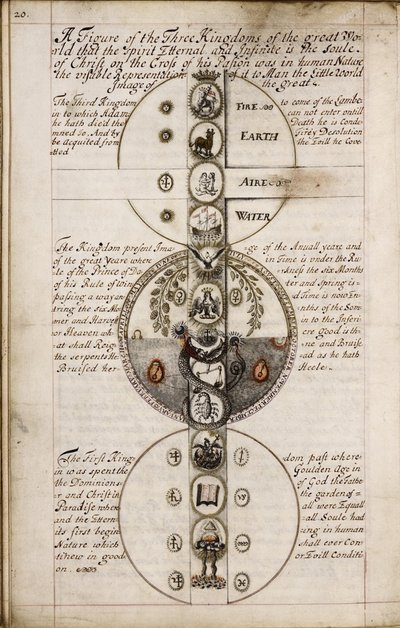 20.
A Figure of the Three Kingdoms of the great Wo-
rld that the Spirit Etternal and Infinete is the Soule
of Christ on the Cross of his Pasion was in human Nature
the visible Representation of it to Man the Little World
Image of the great
The Third Kingdom to come of the Lambe
in to which Adam can not enter untill
he hath died the Death he is Conde
mned to. And by Firey Desolution
be acquited from the Evill he Cove
tted
FIRE
EARTH
AIRE
WATER
The Kingdom present Ima ge of the Anuall yeare and
of the great yeare where in Time is under the Ru
le of the Prince of Da rkness the six Months
of his Rule of Win ter and Spring is
passing away and Time is now En
tring the six Mo nths of the Som
mer and Harvest in to the Inferi
or Heaven wh ere good is th
at shall Reign ne and Bruise
the serpents He ad as he hath
Bruised her Heele
The First King dom past where
in was spent the Goulden Age in
the Dominions of God the Fathe
r and Christ in the garden of
Paradise where all were Equall
and the Etern all Soule had
its first begin ing in human
Nature which shall ever Con
tinew in good or Evill Conditi
on